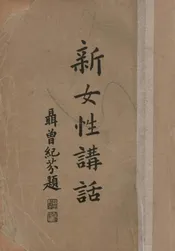 新女性講話
聶曾紀芬題